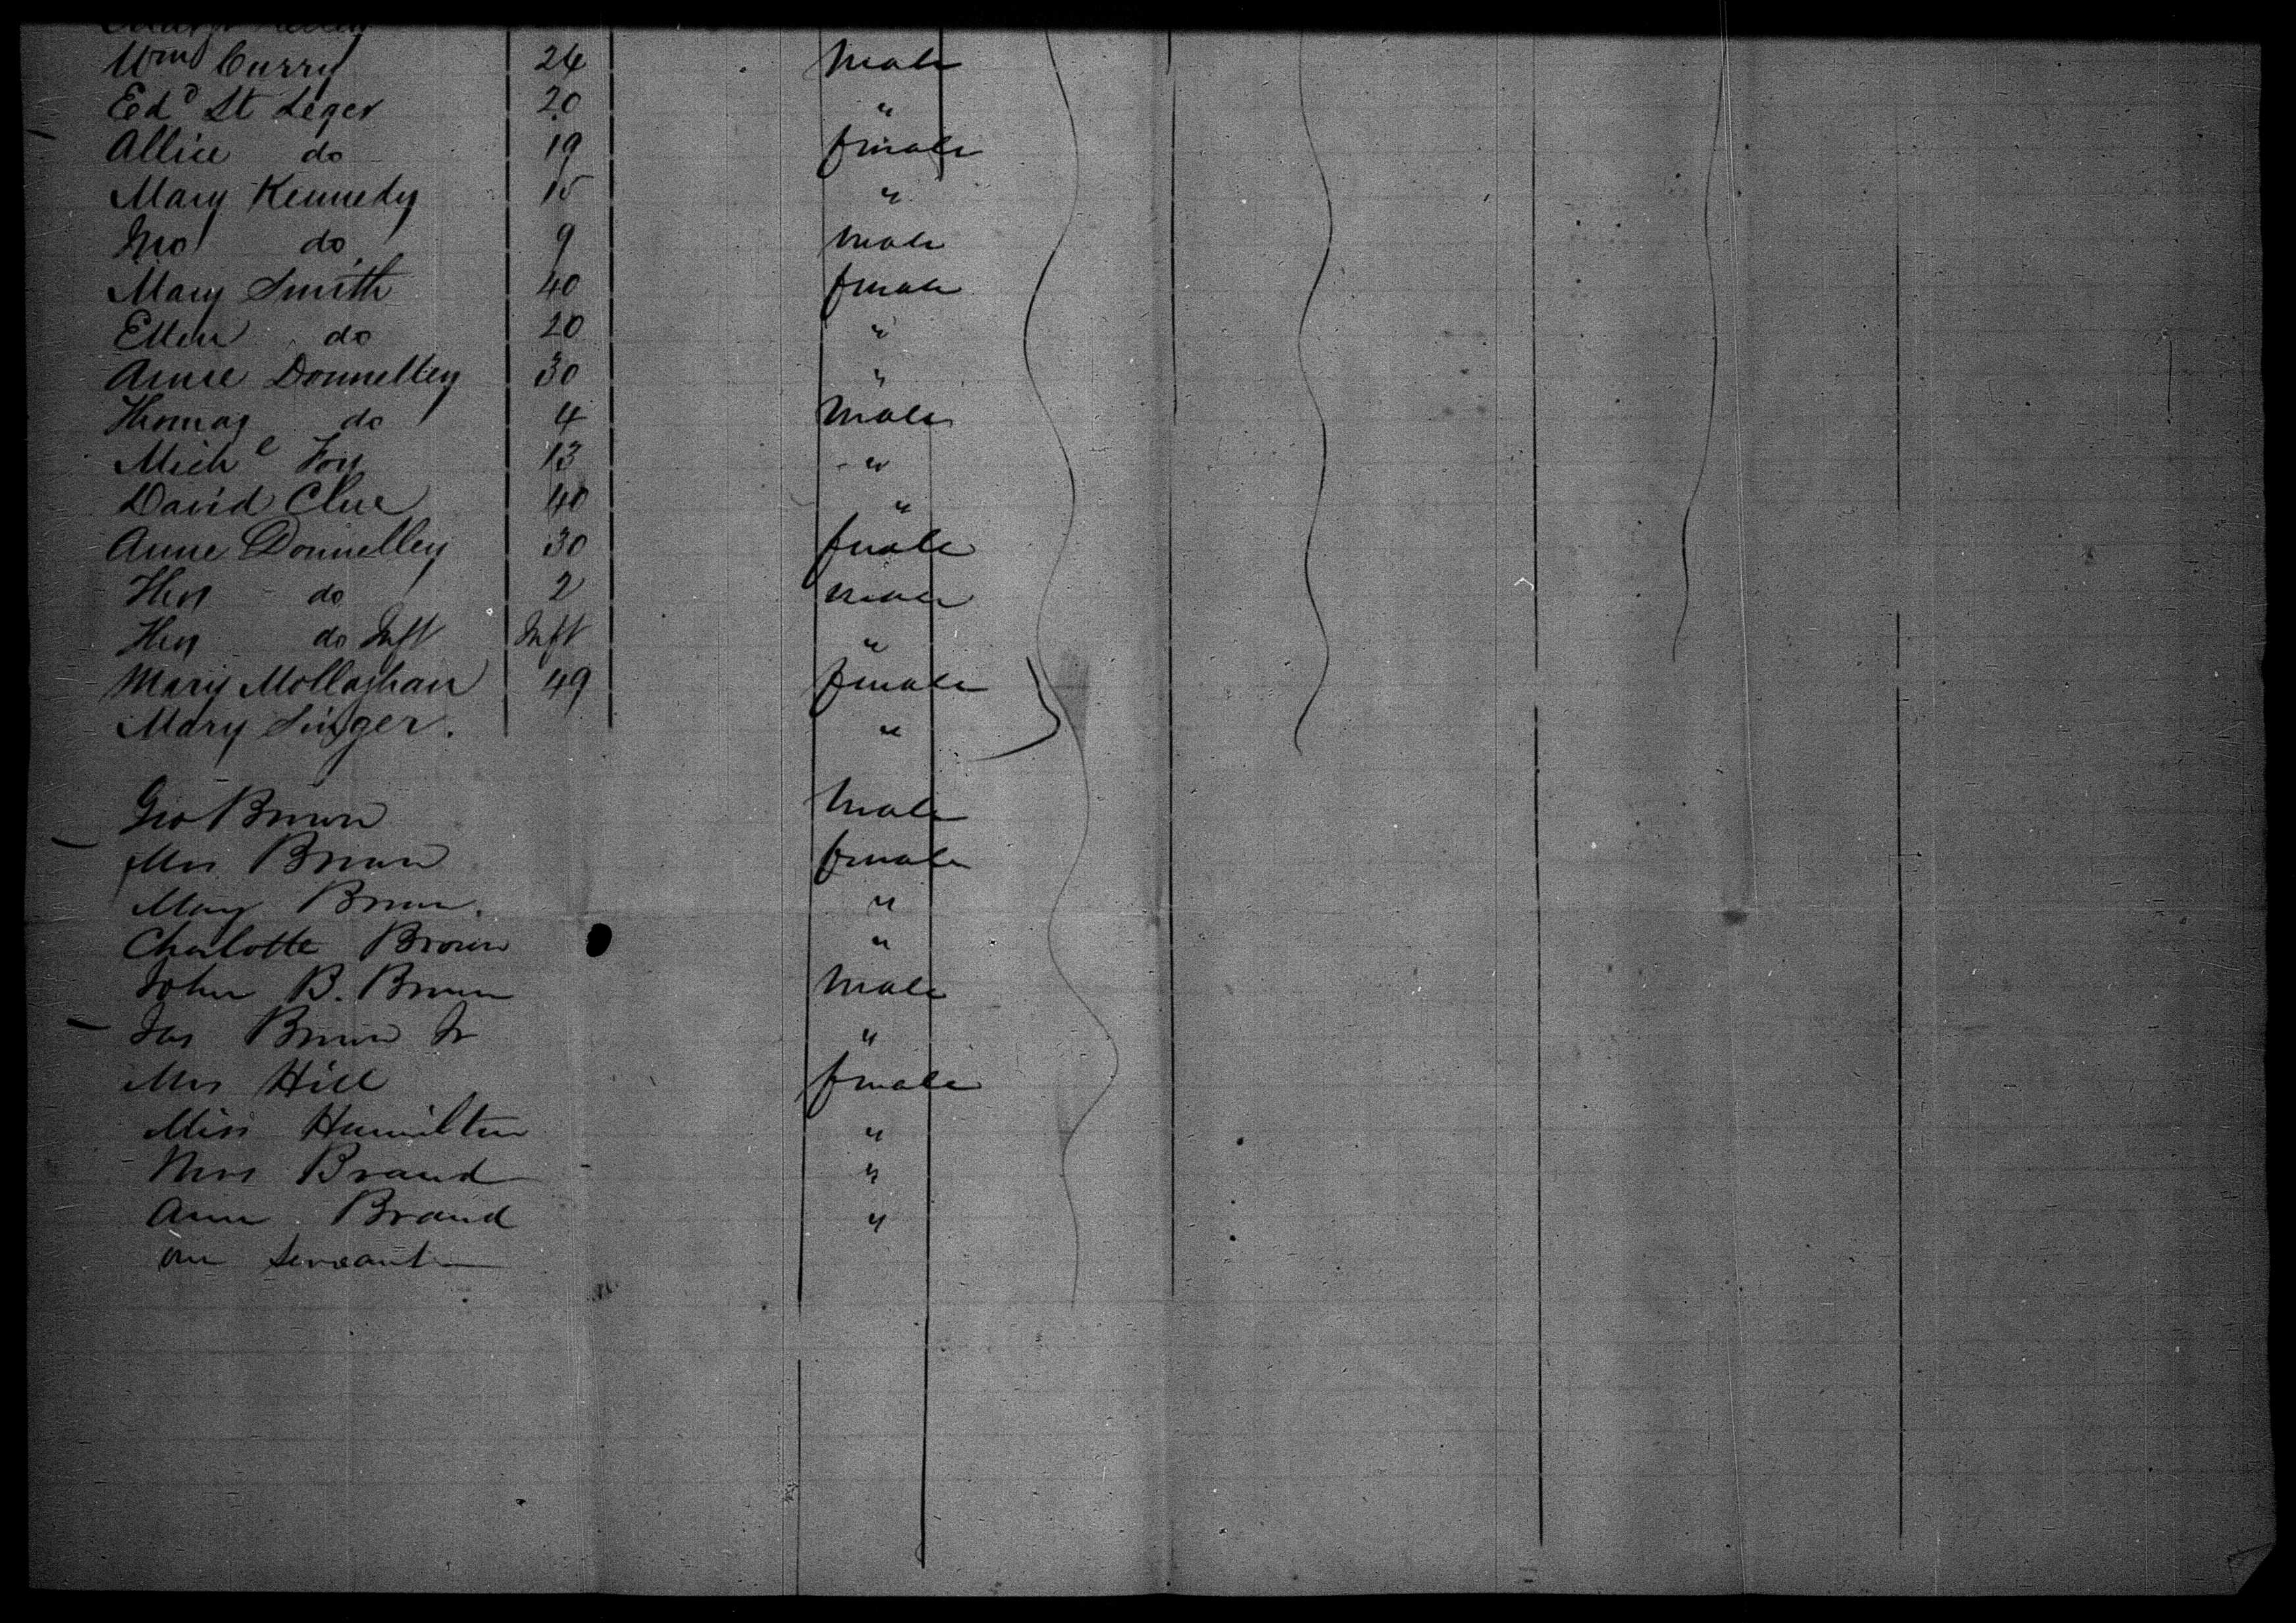 Wm Curry 24 Male
Edd St Leger 20 "
Allice do 19 female
Mary Kennedy 15 "
Jno do 9 Male
Mary Smith 40 female
Ellen do 20 "
Anne Donnelley 30 "
Thomas do 4 Male
Michl Foy 13 "
David Clue 40 "
Anne Donnelley 30 female
Hen do 2 male
Hen do Inft Inft "
Mary Mollaghan 49 female
Mary Singer. "
Geo Brown Male
Mrs Brown female
Mary Brown. "
Charlotte Brown "
John B. Brown Male
Jas Brown Jr "
Mrs Hill female
Miss Hamilton "
Mrs Brand "
Ann Brand "
one servant